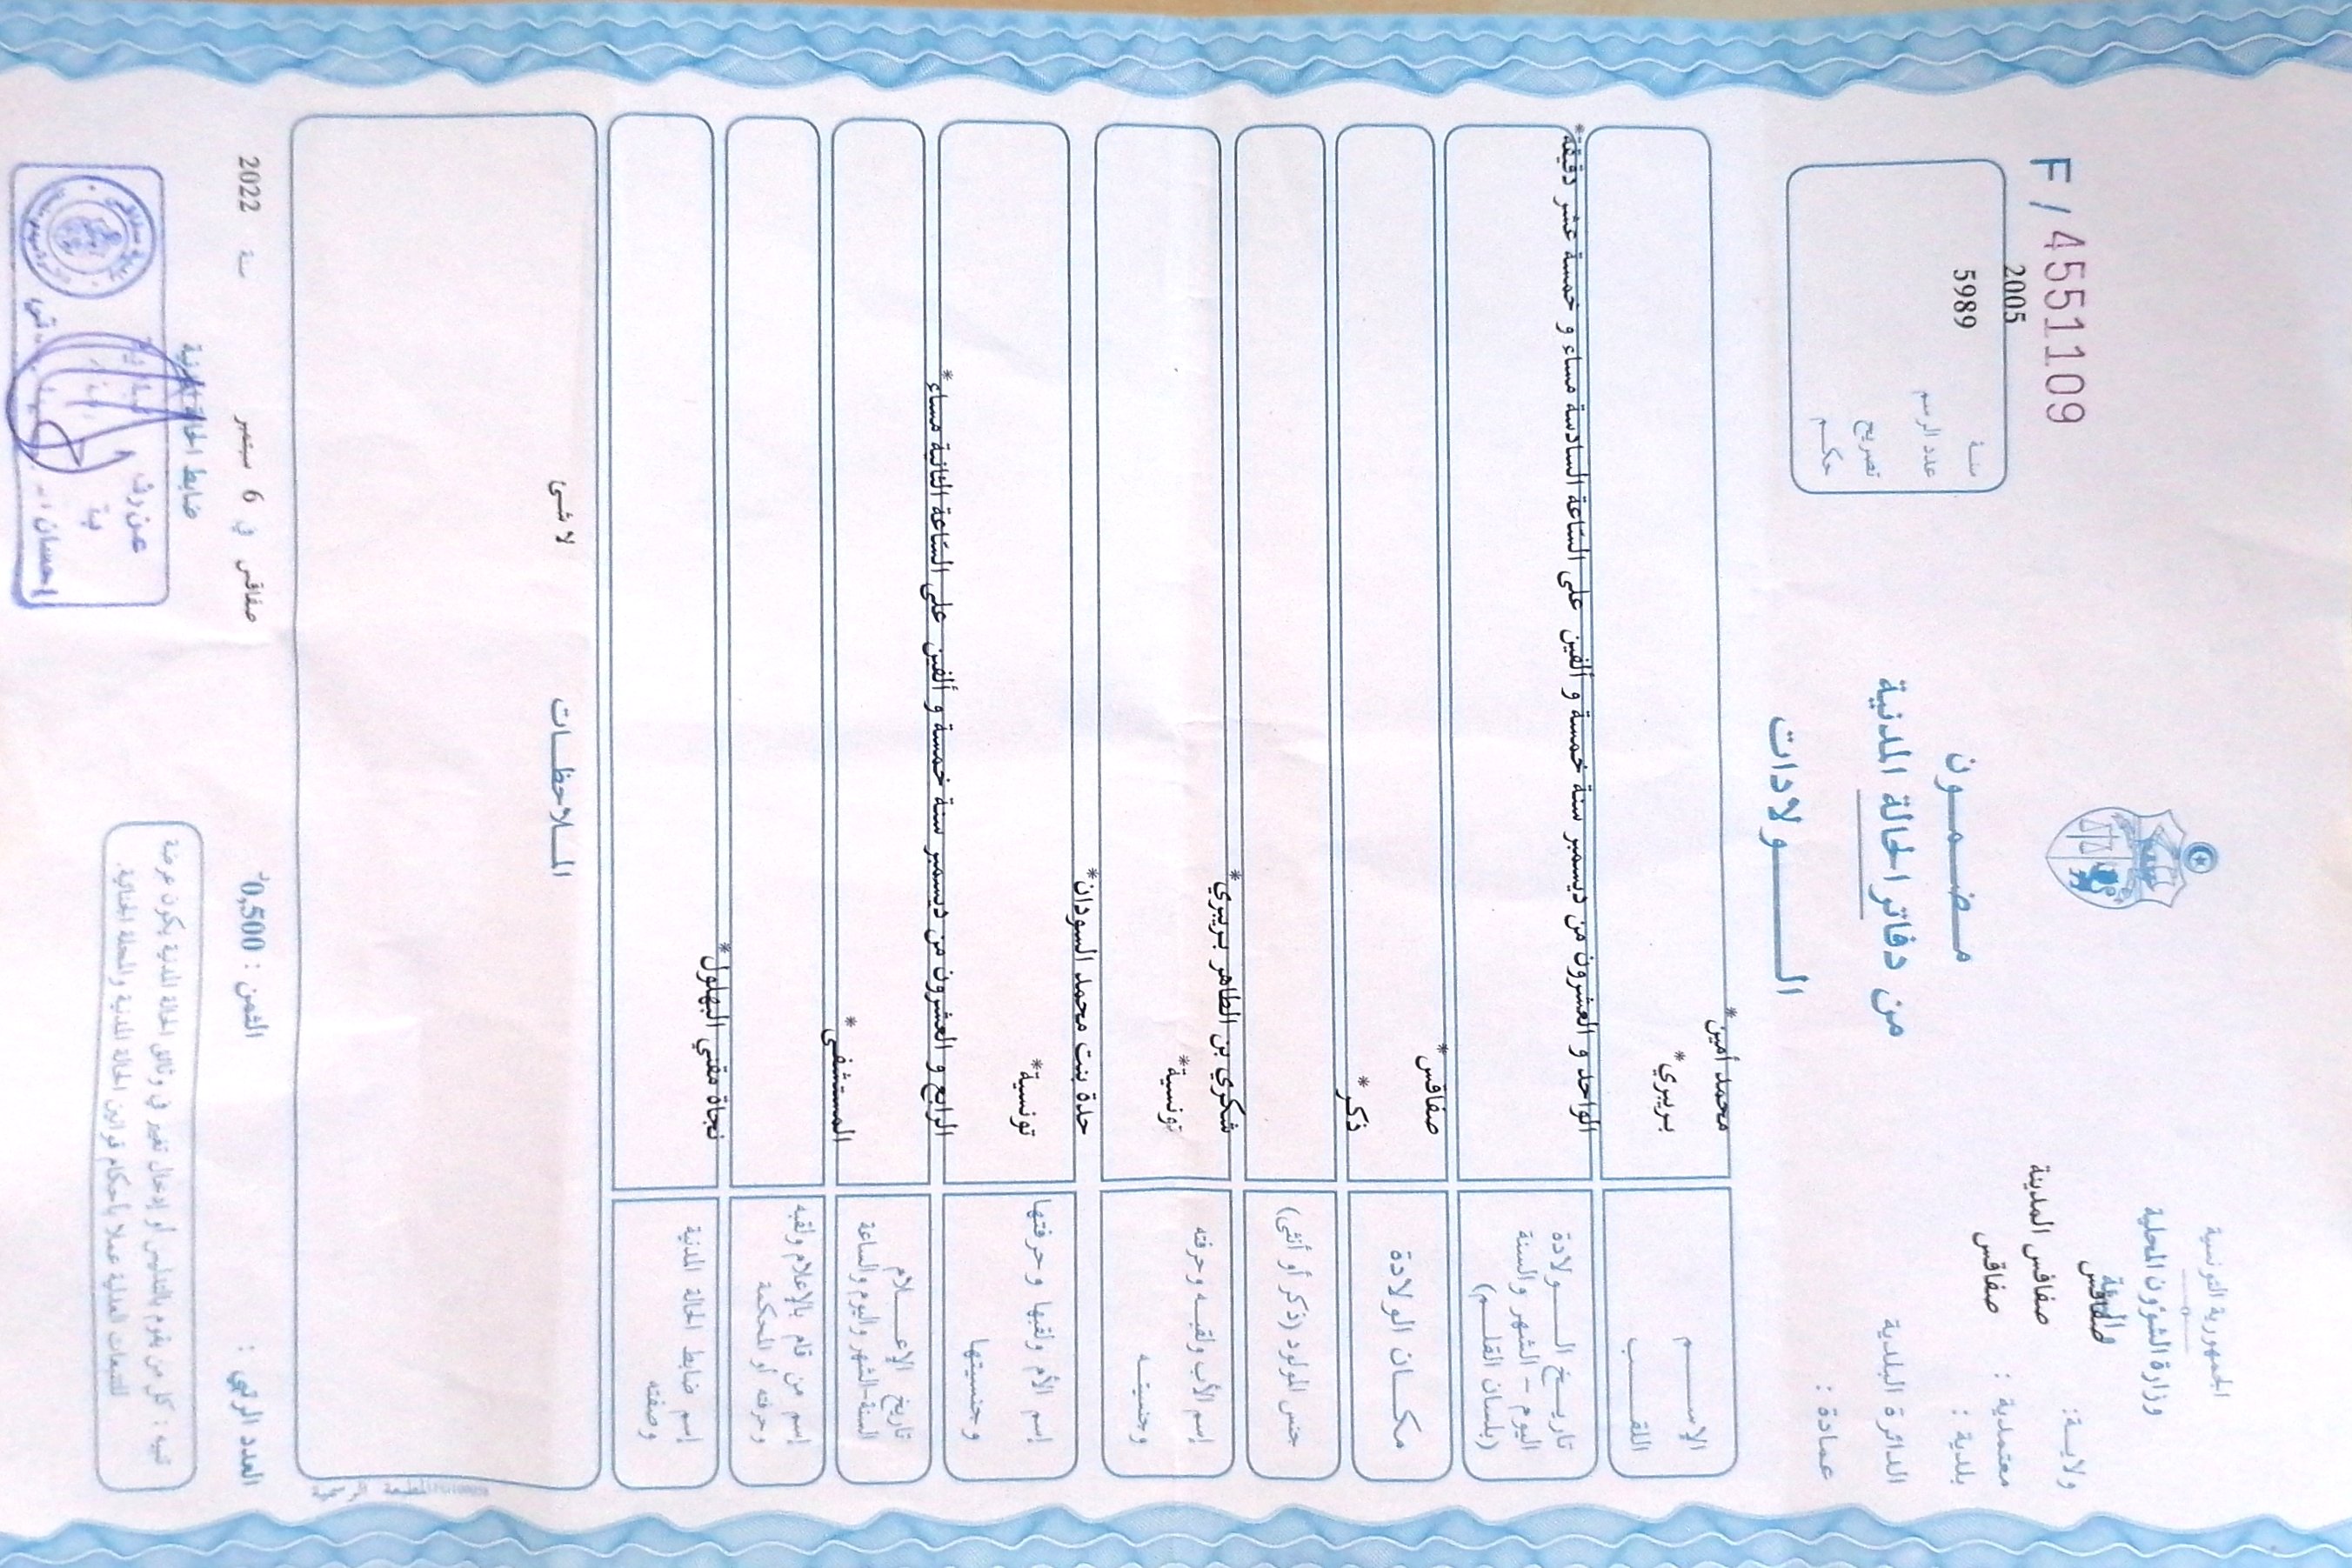 الجمهورية التونسية
وزارة الشؤون المحلية
والبيئة
ولايـة: صفاقس
معتمدية : صفاقس المدينة
بلدية : صفاقس
الدائرة البلدية
عمادة :
F / 4551109
سنـة 2005
عدد الرسم 5989
تصريح
حكـم
مـضـمـون
من دفاتر الحالة المدنية
الـولادات
الإسـم محمد أمين*
اللقـب بربيري*
تاريـخ الـولادة
اليوم - الشهر والسنة
(بلسان القلـم)
الواحد و العشرون من ديسمبر سنة خمسة و ألفين على الساعة السادسة مساء و خمسة عشر دقيقة*
مكـان الولادة صفاقس*
جنس المولود (ذكر أو أنثى) ذكر*
إسم الأب ولقبـه وحرفته شكري بن الطاهر بربيري*
وجنسيتـه تونسية*
إسم الأم ولقبها وحرفتها حدة بنت محمد السودان*
وجنسيتها تونسية*
تاريخ الإعـلام
السنة-الشهر واليوم والساعة
الرابع و العشرون من ديسمبر سنة خمسة و ألفين على الساعة الثانية مساء*
إسم من قام بالإعلام ولقبه
وحرفته أو المحكمة
المستشفى*
إسم ضابط الحالة المدنية
وصفته
نجاة مقني البهلول*
المـلاحظـات
لا شئ
المطبعة الرسمية
العدد الرتبي :
الثمن : 0,500د
صفاقس في 6 سبتمبر سنة 2022
ضابط الحالة المدنية
تنبيه : كل من يقوم بالتدليس أو إدخال تغيير في وثائق الحالة المدنية يكون عرضة
للتتبعات العدلية عملا بأحكام قوانين الحالة المدنية والمجلة الجنائية.
إحسان